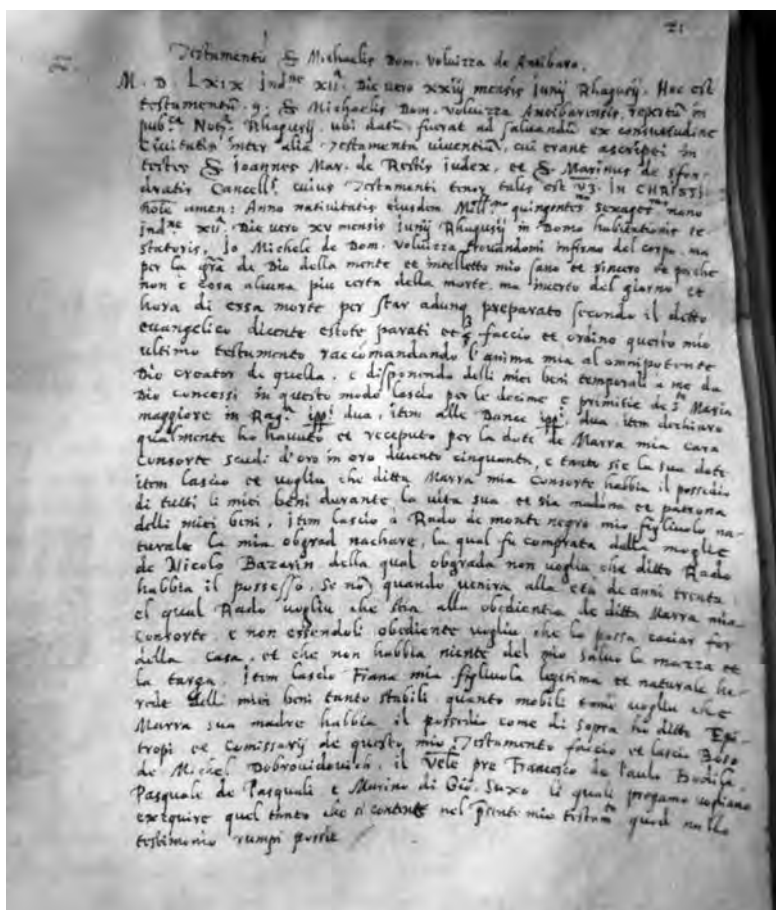 21
Testamentũ S. Michaelis Dom. Voluizza de Antibaro.
M. D. LXIX indne XIIa. Die vero XXiij mensis Junij Rhagusij. Hoc est
testamentũ S. Michaelis Dom. Voluizza Antibarensis, repertũ in
pubca Notria Rhagusij ubi datũ fuerat ad salvandũ ex consuetudine
Civitatis inter alia Testamenta viventiũ, cui erant ascripti in
testes S. Joannes Mar. de Restis judex, et S. Marinus de Sfon-
dratis Cancells. cuius Testamenti tenor talis est vz. IN CHRISTI
noĩe amen: Anno nativitatis eiusdem Millmo quingentmo sexagesmo nono
indne XIIa. Die vero XV mensis Junij Rhagusij in Domo habitationis te
statoris, Jo Michele de Dom. Voluizza trovandomi infirmo del corpo, ma
per la grã de Dio della mente et intelletto mio sano et sincero et perche
non è cosa alcuna piu certa della morte, ma incerto del giorno et
hora di essa morte per star adunq preparato secondo il ditto
evangelico dicente estote parati etc faccio et ordino questo mio
ultimo testamento raccomandando l'anima mia al omnipotente
Dio creator de quella, e disponendo delli miei beni temporali a me da
Dio concessi in questo modo lascio per le decime e primitie de Sta Maria
maggiore in Raga ipp! dua, item alle Dance ipp! dua, item dechiaro
qualmente ho havuto et receputo per la dote de Marra mia cara
Consorte scudi d'oro in oro ducento cinquanta, e tanto sie la sua dote
item lascio et vogliu che ditta Marra mia Consorte habbia il possedio
di tutti li miei beni durante la vita sua et sia madona et patrona
delli miei beni, item lascio à Rado de monte negro mio figliuolo na-
turale la mia obgrad nachave, la qual fu comprata dalla moglie
de Nicolo Bazarin, della qual obgrada non vogliu che ditto Rado
habbia il possesso, Se nõ quando venira alla eta de anni trenta,
el qual Rado vogliu che stia alla obedientia de ditta Marra mia
Consorte, e non essendoli obediente vogliu che lo possa caciar for
della casa, et che non habbia niente del mio salvo la mazza et
la targa, Item lascio Frana mia figliuola legitima et naturale he-
rede delli miei beni tanto stabili quanto mobili come vogliu che
Marra sua madre habbia il possedio come di sopra ho ditto Epi-
tropi et Comissarij de questo mio Testamento faccio et lascio Boso
de Michel Dobrovidovich, il Vele pre Francesco de Paulo Bodila,
Pasquale de Pasquali e Marino di Gio. Suxo li quali pregamo vogliano
exequire quel tanto che si contene nel pñte mio testamto quod nullo
testimonio rumpi possit